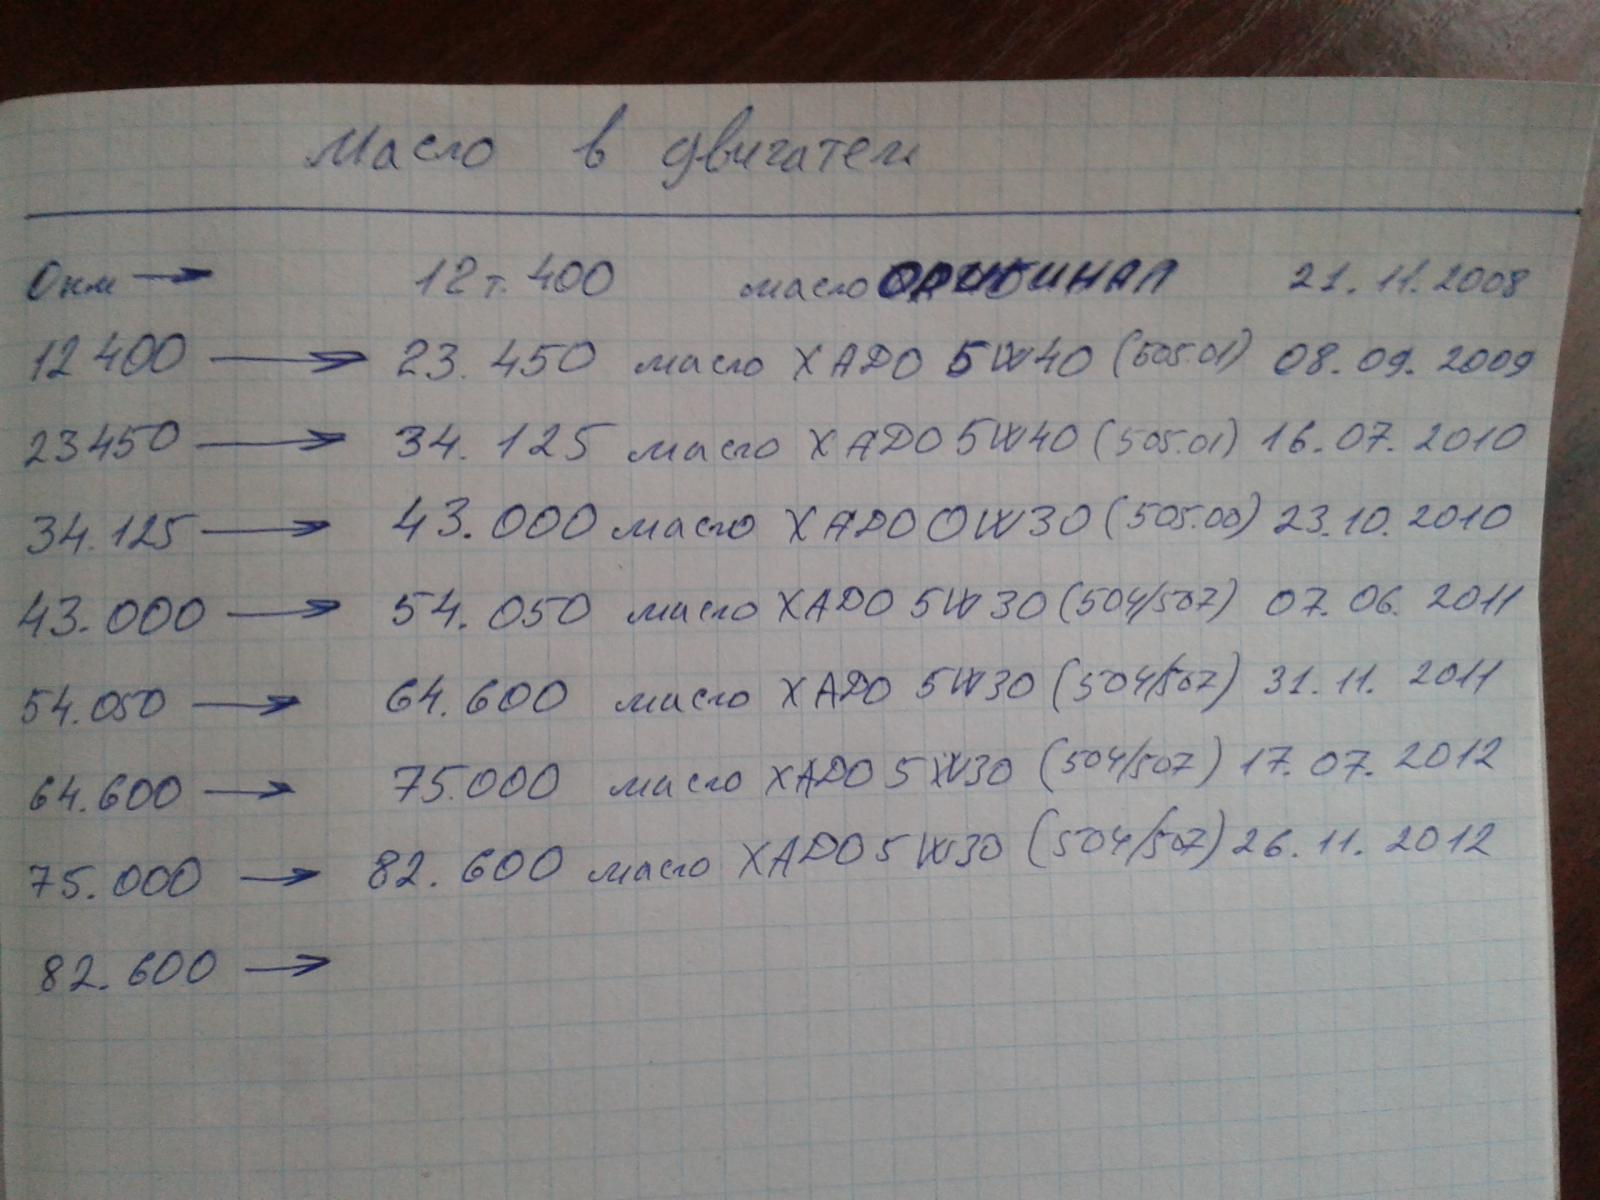 Масло в двигатели
0км → 12т.400 масло ОРИГИНАЛ 21.11.2008
12400 → 23.450 масло XADO 5W40 (505.01) 08.09.2009
23450 → 34.125 масло XADO 5W40 (505.01) 16.07.2010
34.125 → 43.000 масло XADO 0W30 (505.00) 23.10.2010
43.000 → 54.050 масло XADO 5W30 (504/507) 07.06.2011
54.050 → 64.600 масло XADO 5W30 (504/507) 31.11.2011
64.600 → 75.000 масло XADO 5W30 (504/507) 17.07.2012
75.000 → 82.600 масло XADO 5W30 (504/507) 26.11.2012
82.600 →